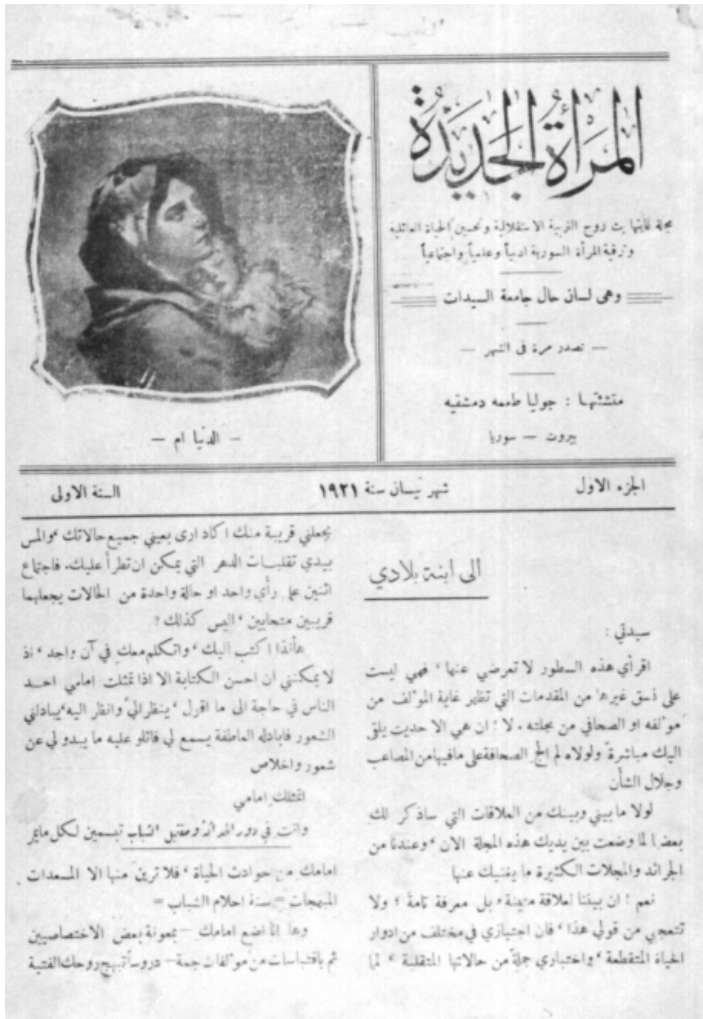 المرأة الجديدة
مجلة غايتها بث روح التربية الاستقلالية وتحسين الحياة العائلية
وترقية المرأة السورية ادبياً وعلمياً واجتماعياً
وهى لسان حال جامعة السيدات
— تصدر مرة فى الشهر —
منشئتها : جوليا طعمه دمشقيه
بيروت — سوريا
— الدنيا ام —
الجزء الاول شهر نيسان سنة ١٩٢١ السنة الاولى
الى ابنة بلادي
سيدتي :
اقرأي هذه السطور لا تعرضي عنها ، فهي ليست
على نسق غيرها من المقدمات التي تظهر غاية المؤلف من
مؤلفه او الصحافي من مجلته . لا ! ان هي الا حديث يلقى
اليك مباشرة ولولاه لم الج الصحافة على مافيها من المصاعب
وجلال الشأن
لولا ما بيني وبينك من العلاقات التي ساذكر لك
بعضها لما وضعت بين يديك هذه المجلة الان ، وعندنا من
الجرائد والمجلات الكثيرة ما يغنيك عنها
نعم ! ان بيننا لعلاقة متينة ، بل معرفة تامة ؛ ولا
تتعجبي من قولي هذا ، فان اجتيازي في مختلف من ادوار
الحياة المتقطعة ، واختباري جملة من حالاتها المتقلبة ، لما
يجعلني قريبة منك اكاد ارى بعيني جميع حالاتك ، والمس
بيدي تقلبات الدهر التي يمكن ان تطرأ عليك . فاجتماع
اثنين على رأي واحد او حالة واحدة من الحالات يجعلهما
قريبين متحابين ، اليس كذلك ؟
هأنذا اكتب اليك ، واتكلم معك في آن واحد ، اذ
لا يمكنني ان احسن الكتابة الا اذا تمثلت امامي احد
الناس في حاجة الى ما اقول ، ينظر اليّ وانظر اليه ، يبادلني
الشعور فابادله العاطفة يسمع لي فاتلو عليه ما يبدو لي عن
شعور واخلاص
اتمثلك امامي
وانت في دور ومقتبل الشباب تبسمين لكل ما يمر
امامك من حوادث الحياة ، فلا ترين منها الا المسعدات
المبهجات = سنة احلام الشباب =
وها انا اضع امامك — بمعونة بعض الاختصاصيين
ثم باقتباسات من مؤلفات جمة — دروساً تبهج روحك الفتية